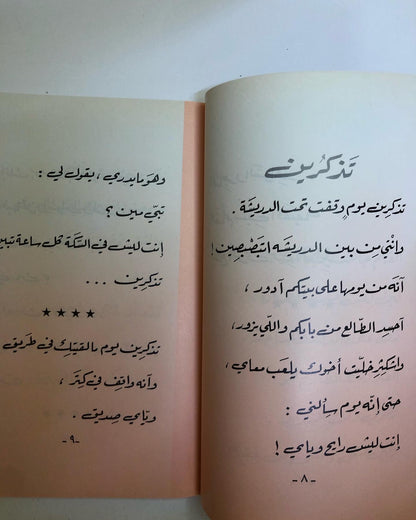 تذكرين
تذكرين يوم وقفت تحت الدريشة .
وانتي من بين الدريشه اتبصبصين !
آنه من يومها على بيتكم آدور ،
آحسد الطالع من بابكم واللي يزور ،
واستكثر خليت أخوك يلعب معاي ،
حتى إنّه يوم سألني :
إنت ليش رايح وياي !
- ٨ -
وهوّ مايدري ، يقول لي :
تبّي مين ؟
إنت لليش في السكّة كل ساعة تبين
تذكرين ...
★★★★
تذكرين يوم لاقيتك في طريق
وآنه واقف في كبَر ،
وياي صديق .
- ٩ -